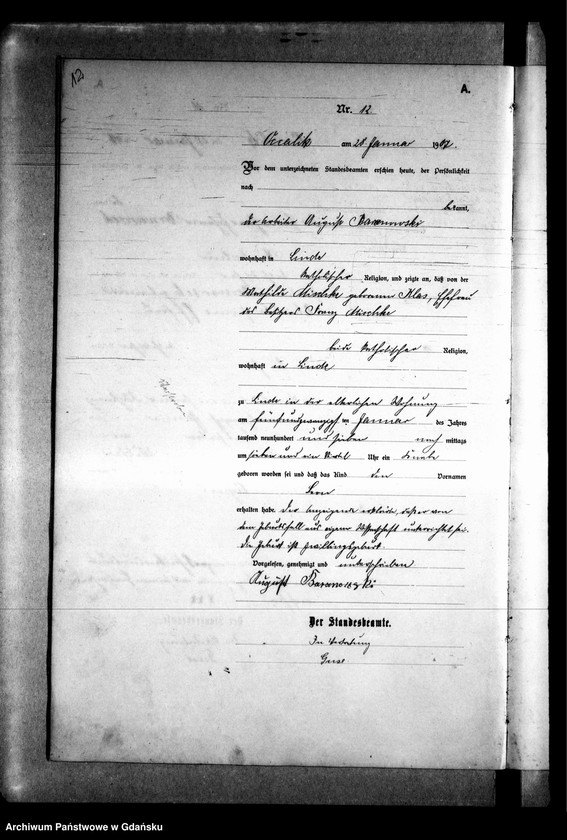 12
A.
Nr. 12
am 28 Januar 1907.
Vor dem unterzeichneten Standesbeamten erschien heute, der Persönlichkeit
nach
bekannt,
der Arbeiter August Baranowski
wohnhaft in Linde
katholischer Religion, und zeigte an, daß von der
Mathilde Mischke geborenen Klas, Ehefrau
des Besitzers Franz Mischke
beide katholischer Religion,
wohnhaft in Linde
zu Linde in der elterlichen Wohnung
am fünfundzwanzigsten Januar des Jahres
tausend neunhundert und sieben nach mittags
um sieben und ein Viertel Uhr ein Knabe
geboren worden sei und daß das Kind den Vornamen
Leon
erhalten habe. Der Anzeigende erklärte, daß er von
dem Geburtsfall aus eigener Wissenschaft unterrichtet sei.
Die Geburt ist Zwillingsgeburt.
Vorgelesen, genehmigt und unterschrieben
August Baranowski
Der Standesbeamte.
In Vertretung
Archiwum Państwowe w Gdańsku